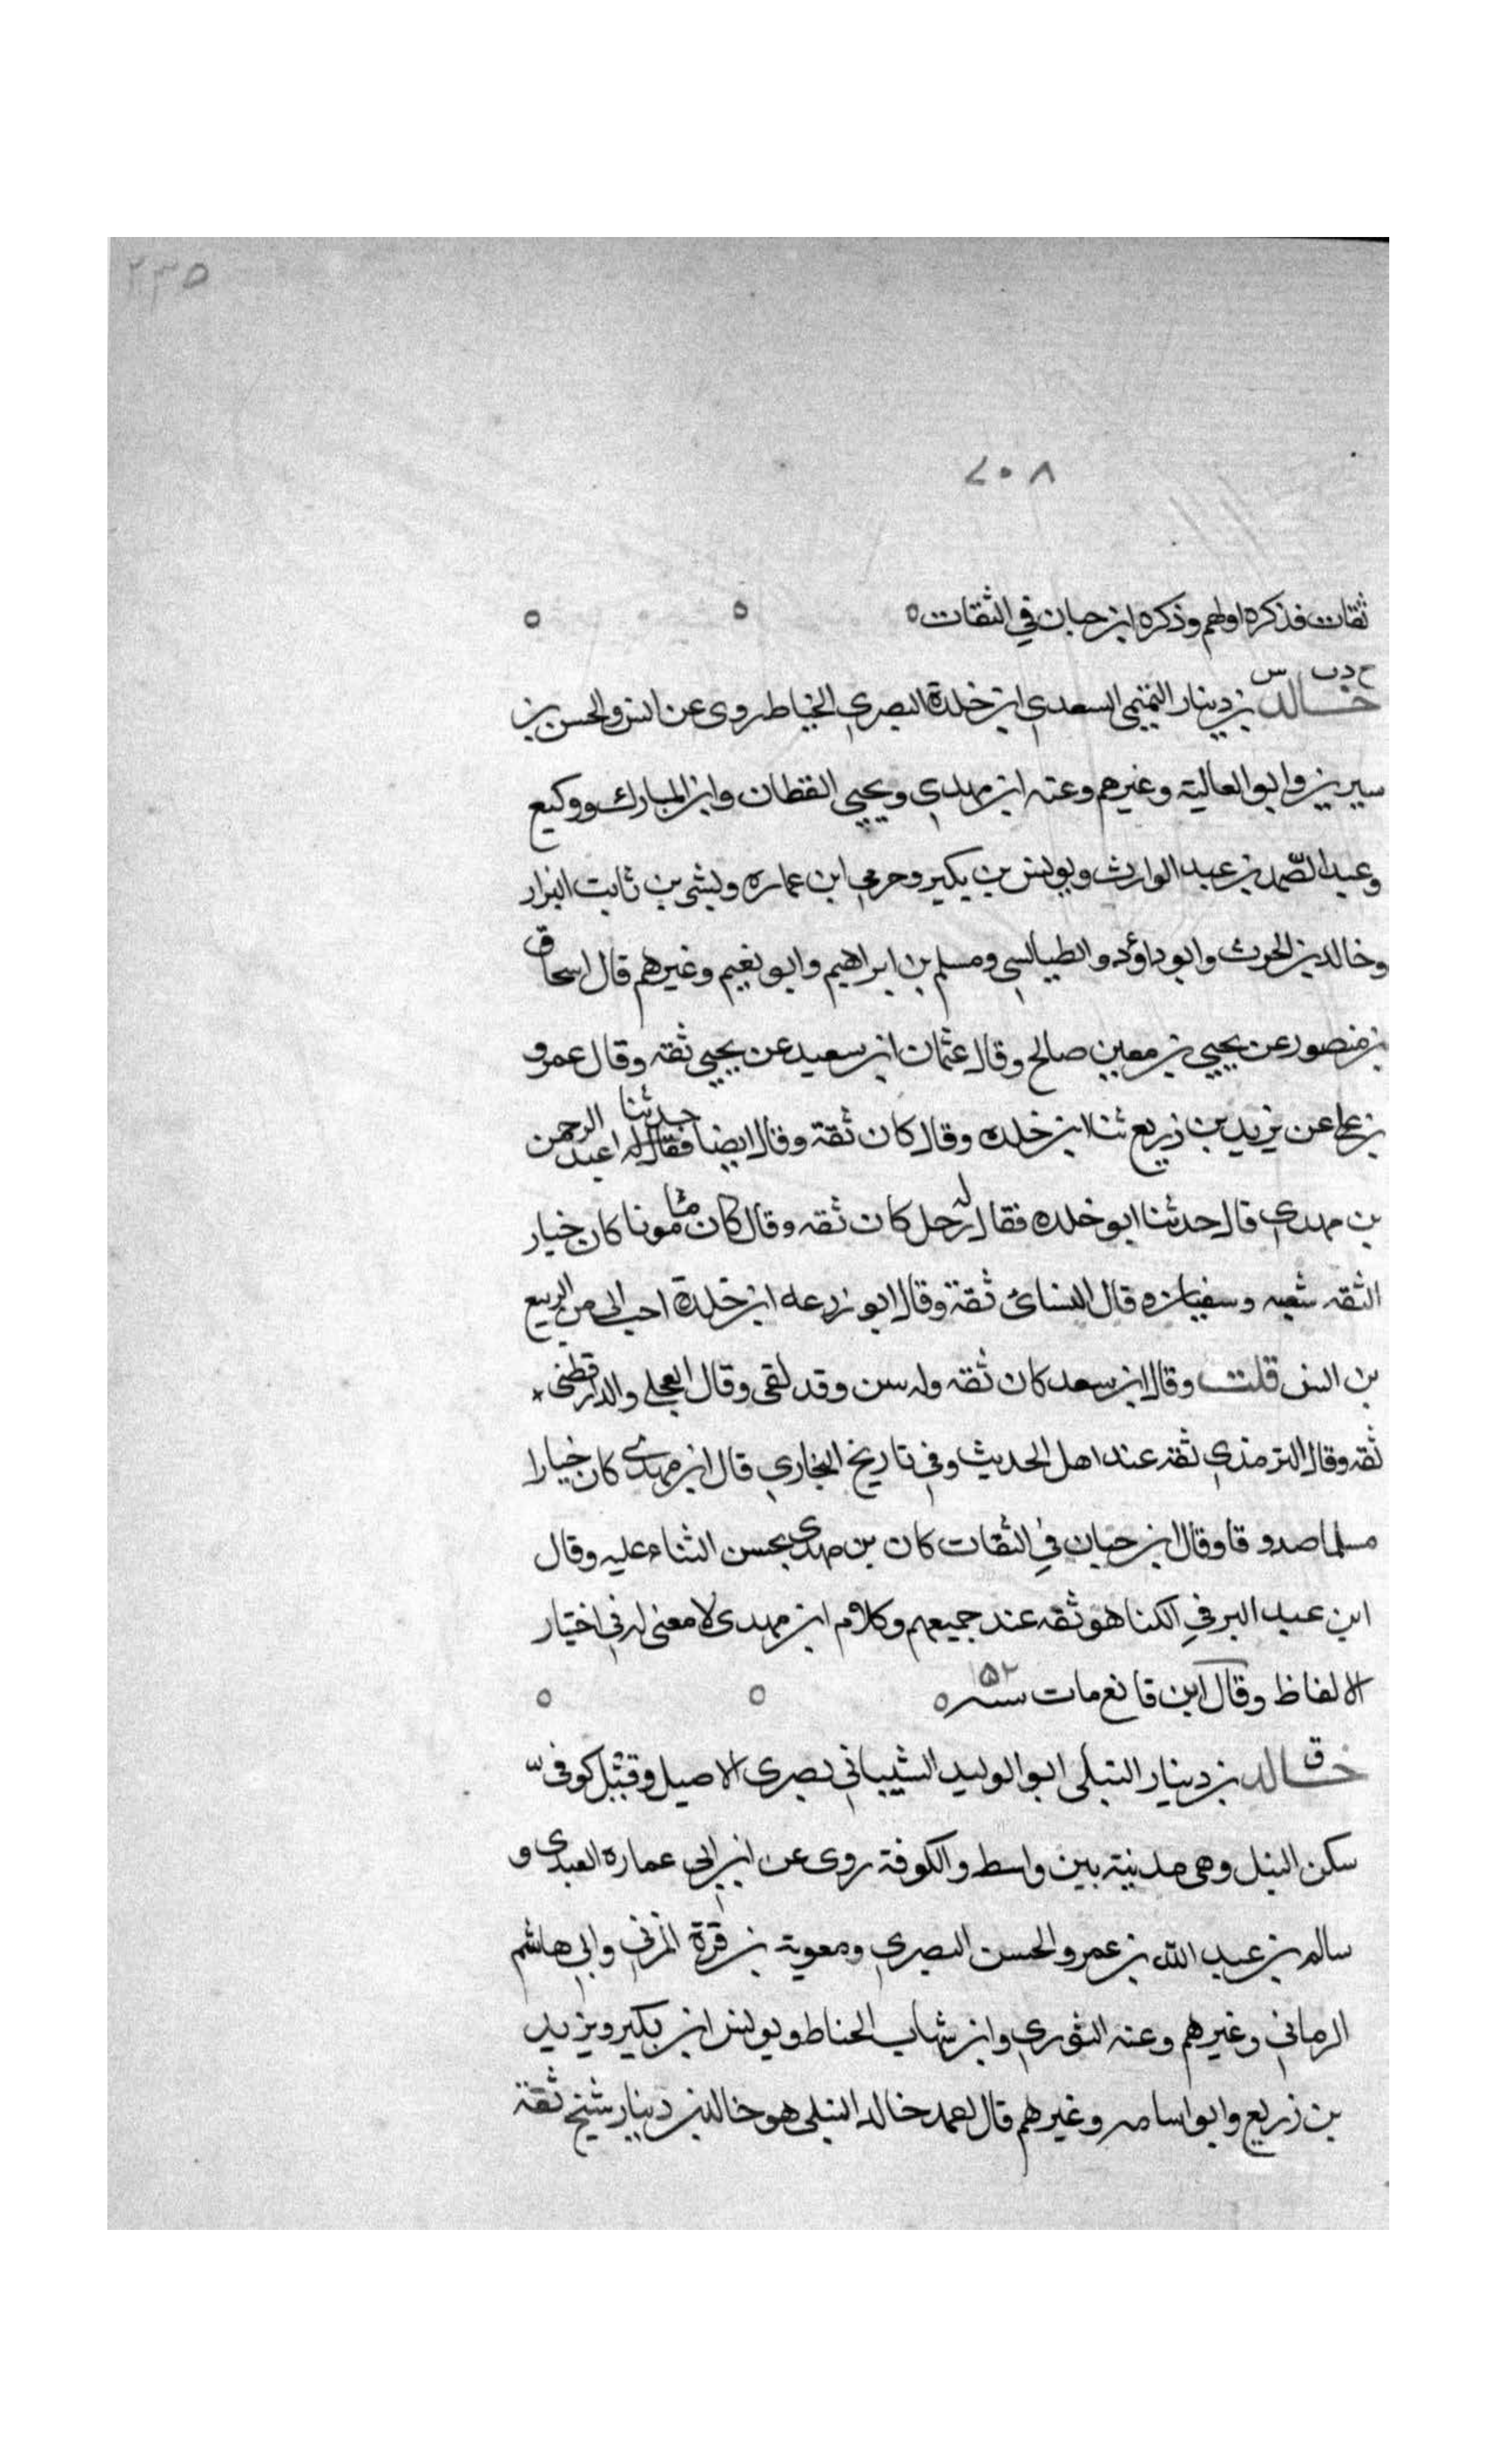 ٢٣٥
٧٠٨
ثقات فذكره اولهم وذكره ابن حبان في الثقات ٥ ٥ ٥
خ د ت س
خالد بن دينار التميمي السعدي ابن خلدة البصري الخياط روى عن انس والحسن بن
سيرين وابو العالية وغيرهم وعنه ابن مهدي ويحيى القطان وابن المبارك ووكيع
وعبد الصمد بن عبد الوارث ويونس بن بكير وحرمي ابن عماره وبشر بن ثابت البزار
وخالد بن الحرث وابو داؤد والطيالسي ومسلم بن ابراهيم وابو نعيم وغيرهم قال اسحاق
بن منصور عن يحيى بن معين صالح وقال عثمان ابن سعيد عن يحيى ثقه وقال عمرو
بن علي عن يزيد بن زريع ثنا ابن خلده وقال كان ثقة وقال ايضا حدثنا عبد الرحمن
بن مهدي قال حدثنا ابو خلده فقال له رجل كان ثقه وقال كان مامونا كان خيار
الثقه شعبه وسفيان ٥ قال النسائ ثقة وقال ابو زرعه ابن خلدة احب الي من الربيع
بن انس قلت وقال ابن سعد كان ثقه وله سن وقد لقي وقال العجلي والدارقطني
ثقه وقال الترمذي ثقه عند اهل الحديث وفي تاريخ البخاري قال ابن مهدي كان خيارا
مسلما صدوقا وقال ابن حبان في الثقات كان بن مهدي يحسن الثناء عليه وقال
ابن عبد البر في الكنا هو ثقه عند جميعهم وكلام ابن مهدي لا معنى له في اختيار
الالفاظ وقال ابن قانع مات سنه ١٥٢ ٥ ٥ ٥
ق
خالد بن دينار النيلي ابو الوليد الشيباني بصري الاصل وقيل كوفي
سكن النيل وهي مدينة بين واسط والكوفة روى عن ابن ابي عماره العبدي و
سالم بن عبد الله بن عمر والحسن البصري ومعوية بن قرة المزني وابي هاشم
الرماني وغيرهم وعنه الثوري وابن شهاب الحناط ويونس ابن بكير ويزيد
بن زريع وابو اسامه وغيرهم قال احمد خالد النيلي هو خالد بن دينار شيخ ثقة